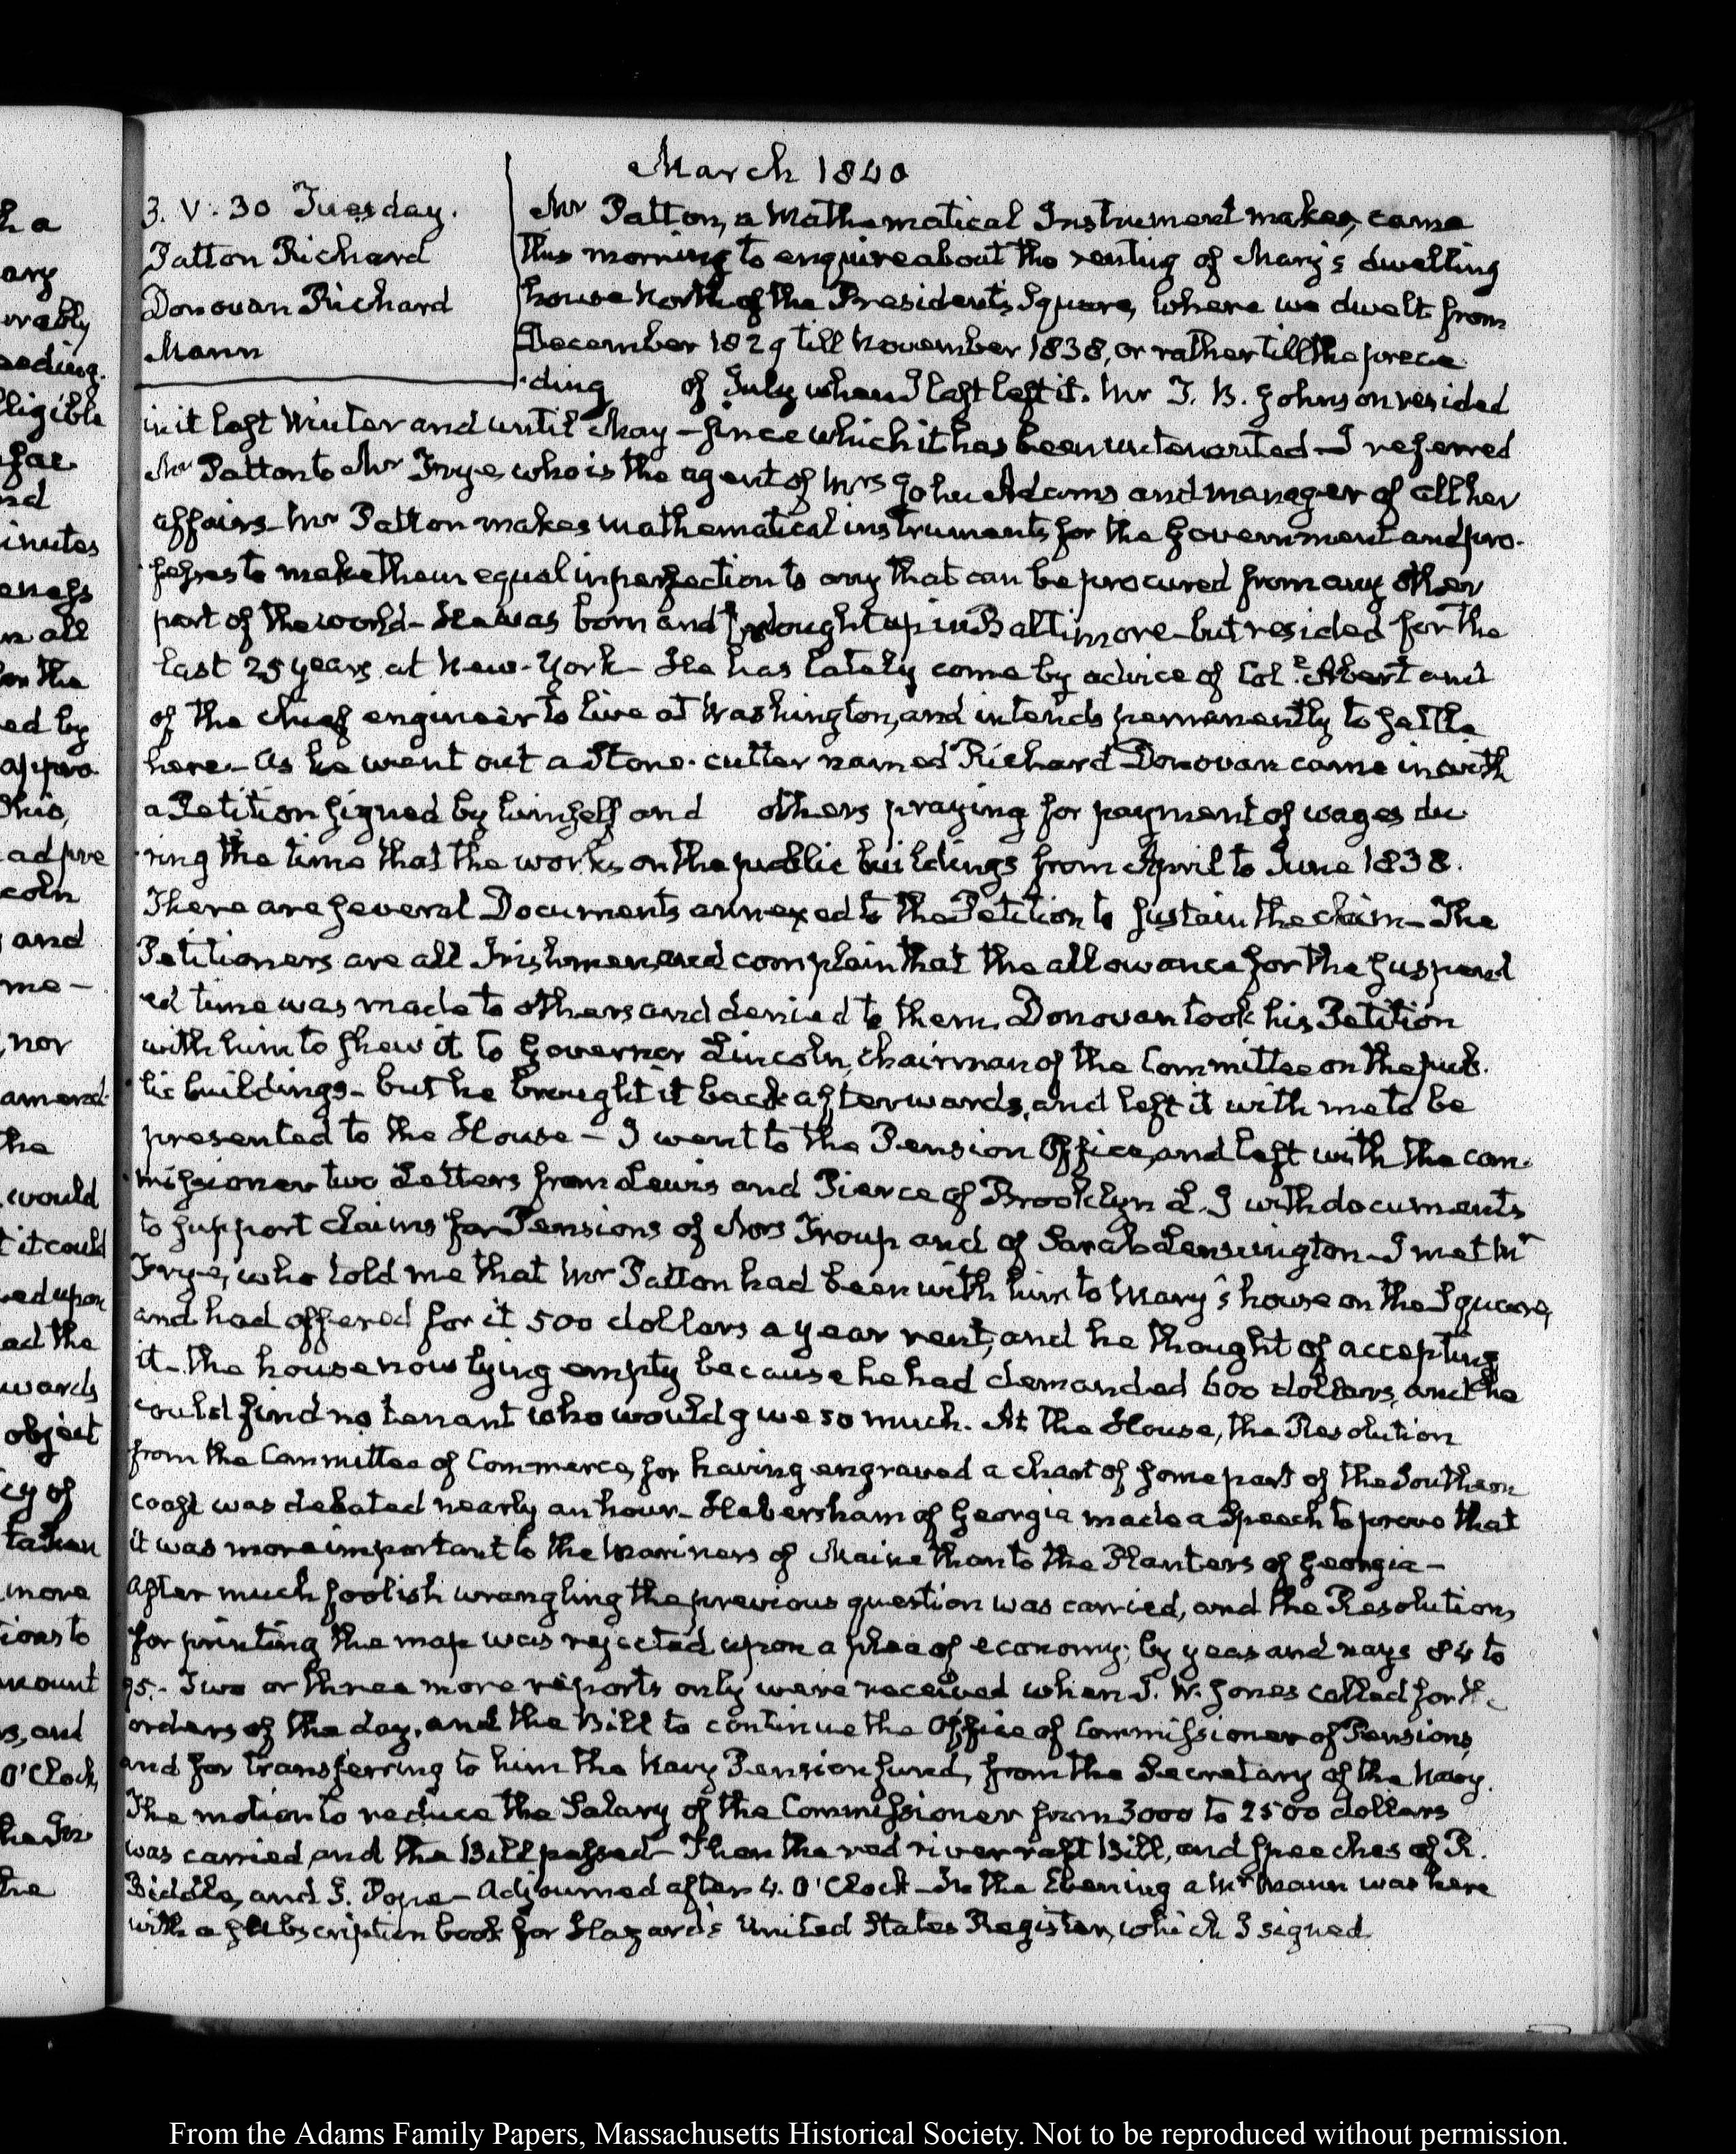 March 1840
3. V. 30 Tuesday.
Patton Richard
Donovan Richard
Mann
Mr Patton, a Mathematical Instrument maker, came
this morning to enquire about the renting of Mary's dwelling
house North of the President's Square, where we dwelt from
December 1829 till November 1838, or rather till the prece-
-ding of July when I last left it. Mr J. B. Johnson resided
in it last Winter and until May - since which it has been untenanted - I referred
Mr Patton to Mr Frye, who is the agent of Mrs John Adams and manager of all her
affairs - Mr Patton makes mathematical instruments for the Government and pro-
-fesses to make them equal in perfection to any that can be procured from any other
part of the world - He was born and brought up in Baltimore - but resided for the
last 25 years at New-York - He has lately come by advice of Col. Abert and
of the chief engineer to live at Washington, and intends permanently to settle
here - As he went out a Stone-cutter named Richard Donovan came in with
a Petition signed by himself and others praying for payment of wages du-
-ring the time that the works on the public buildings from April to June 1838.
There are several Documents annexed to the Petition to sustain the claim - The
Petitioners are all Irishmen, and complain that the allowance for the suspend
ed time was made to others and denied to them. Donovan took his Petition
with him to shew it to Governor Lincoln, chairman of the Committee on the pub-
-lic buildings - but he brought it back afterwards, and left it with me to be
presented to the House - I went to the Pension Office, and left with the com-
-missioner two Letters from Lewis and Pierce of Brooklyn L. I with documents
to support claims for Pensions of Mrs Troup and of Sarah Lensington - I met Mr
Frye, who told me that Mr Patton had been with him to Mary's house on the Square,
and had offered for it 500 dollars a year rent, and he thought of accepting
it - the house now lying empty because he had demanded 600 dollars, and he
could find no tenant who would give so much. At the House, the Resolution
from the Committee of Commerce, for having engraved a chart of some part of the Southern
coast was debated nearly an hour - Habersham of Georgia made a Speech to prove that
it was more important to the Mariners of Maine than to the Planters of Georgia -
After much foolish wrangling the previous question was carried, and the Resolution,
for printing the map was rejected upon a plea of economy; by yeas and nays 84 to
95. - Two or three more reports only were received when J. W. Jones called for the
orders of the day, and the Bill to continue the Office of Commissioner of Pensions,
and for transferring to him the Navy Pension fund, from the Secretary of the Navy.
The motion to reduce the Salary of the Commissioner from 3000 to 2500 dollars
was carried, and the Bill passed - Then the red river raft Bill, and speeches of R.
Biddle, and J. Pope - Adjourned after 4. O'Clock - In the Evening a Mr Mann was here
with a subscription book for Hazard's United States Register, which I signed
h a
ary
erably
eeding.
lligible
far
nd
inutes
eness
in all
on the
ed by
appro-
Ohio,
ad pre
coln
and
me -
, nor
amend-
the
would
t it could
ed upon
ed the
wards
object
cy of
more
tions to
mount
s, and
O'Clock,
the
From the Adams Family Papers, Massachusetts Historical Society. Not to be reproduced without permission.